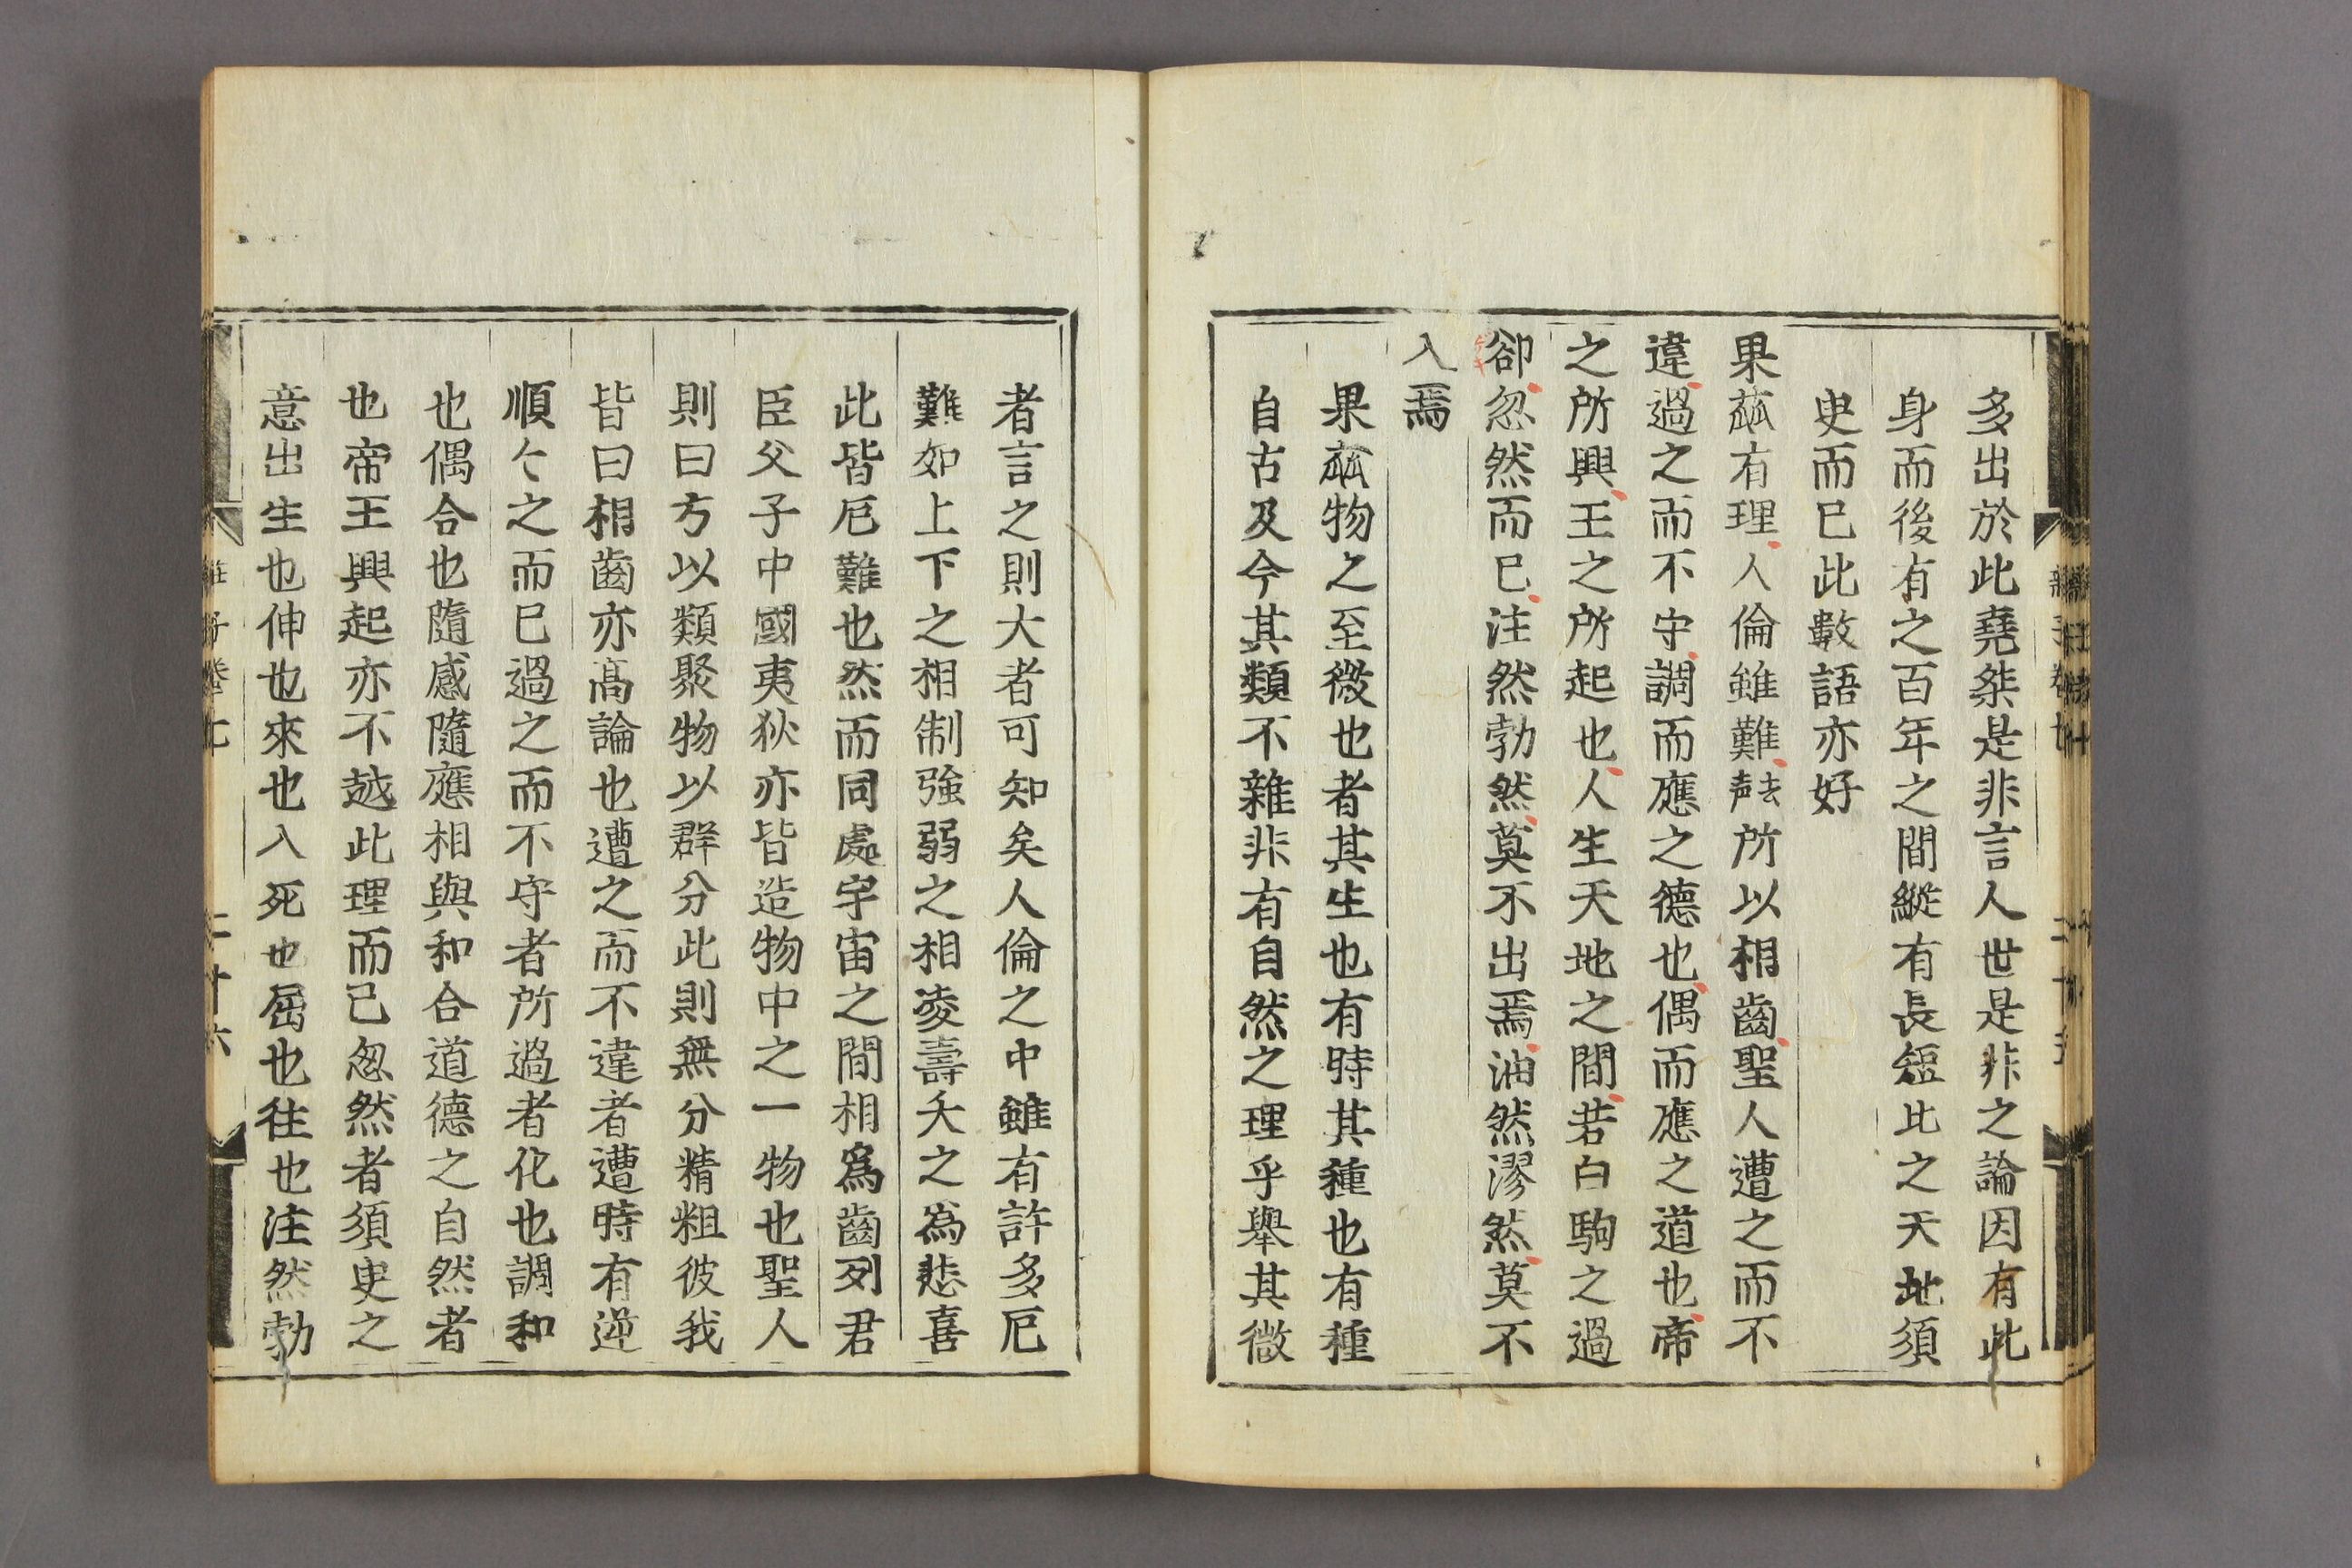 多出於此堯桀是非言人世是非之論因有此
身而後有之百年之間縱有長短比之天地須
史而已此數語亦好
果蓏有理人倫雖難去声所以相齒聖人遭之而不
違過之而不守調而應之德也偶而應之道也帝
之所興王之所起也人生天地之間若白駒之過
郤忽然而已注然勃然莫不出焉油然漻然莫不
入焉
果蓏物之至微也者其生也有時其種也有種
自古及今其類不雜非有自然之理乎舉其微
者言之則大者可知矣人倫之中雖有許多厄
難如上下之相制強弱之相凌壽夭之為悲喜
此皆厄難也然而同處宇宙之間相為齒列君
臣父子中國夷狄亦皆造物中之一物也聖人
則曰方以類聚物以群分此則無分精粗彼我
皆曰相齒亦高論也遭之而不違者遭時有逆
順〻之而已過之而不守者所過者化也調和
也偶合也隨感隨應相與和合道德之自然者
也帝王興起亦不越此理而已忽然者須臾之
意出生也伸也來也入死也屈也往也注然勃
莊子卷七
二十六